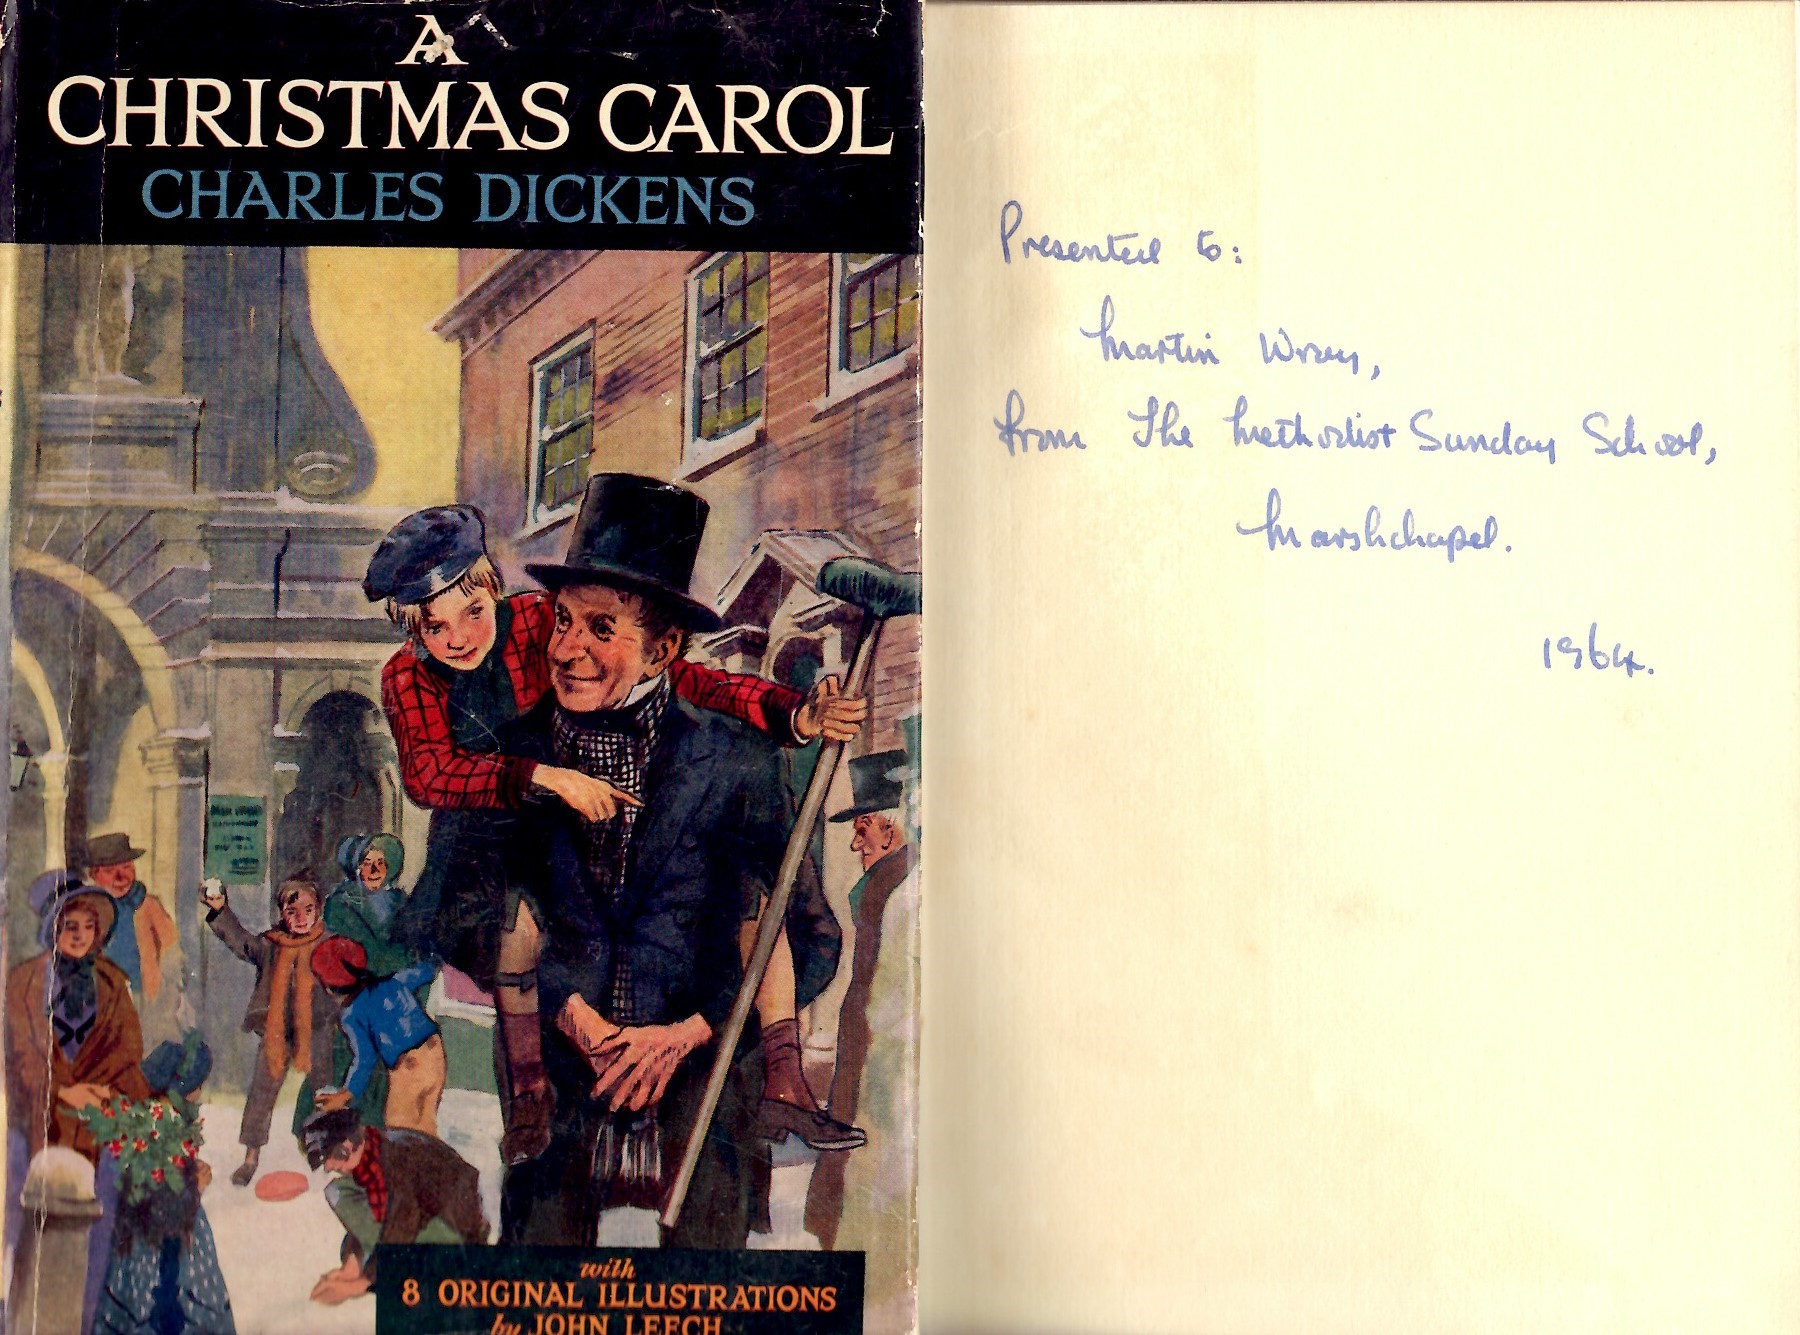 A
CHRISTMAS CAROL
CHARLES DICKENS
with
8 ORIGINAL ILLUSTRATIONS
by JOHN LEECH
Presented to:
Martin Wray,
from The Methodist Sunday School,
Marshchapel.
1964.